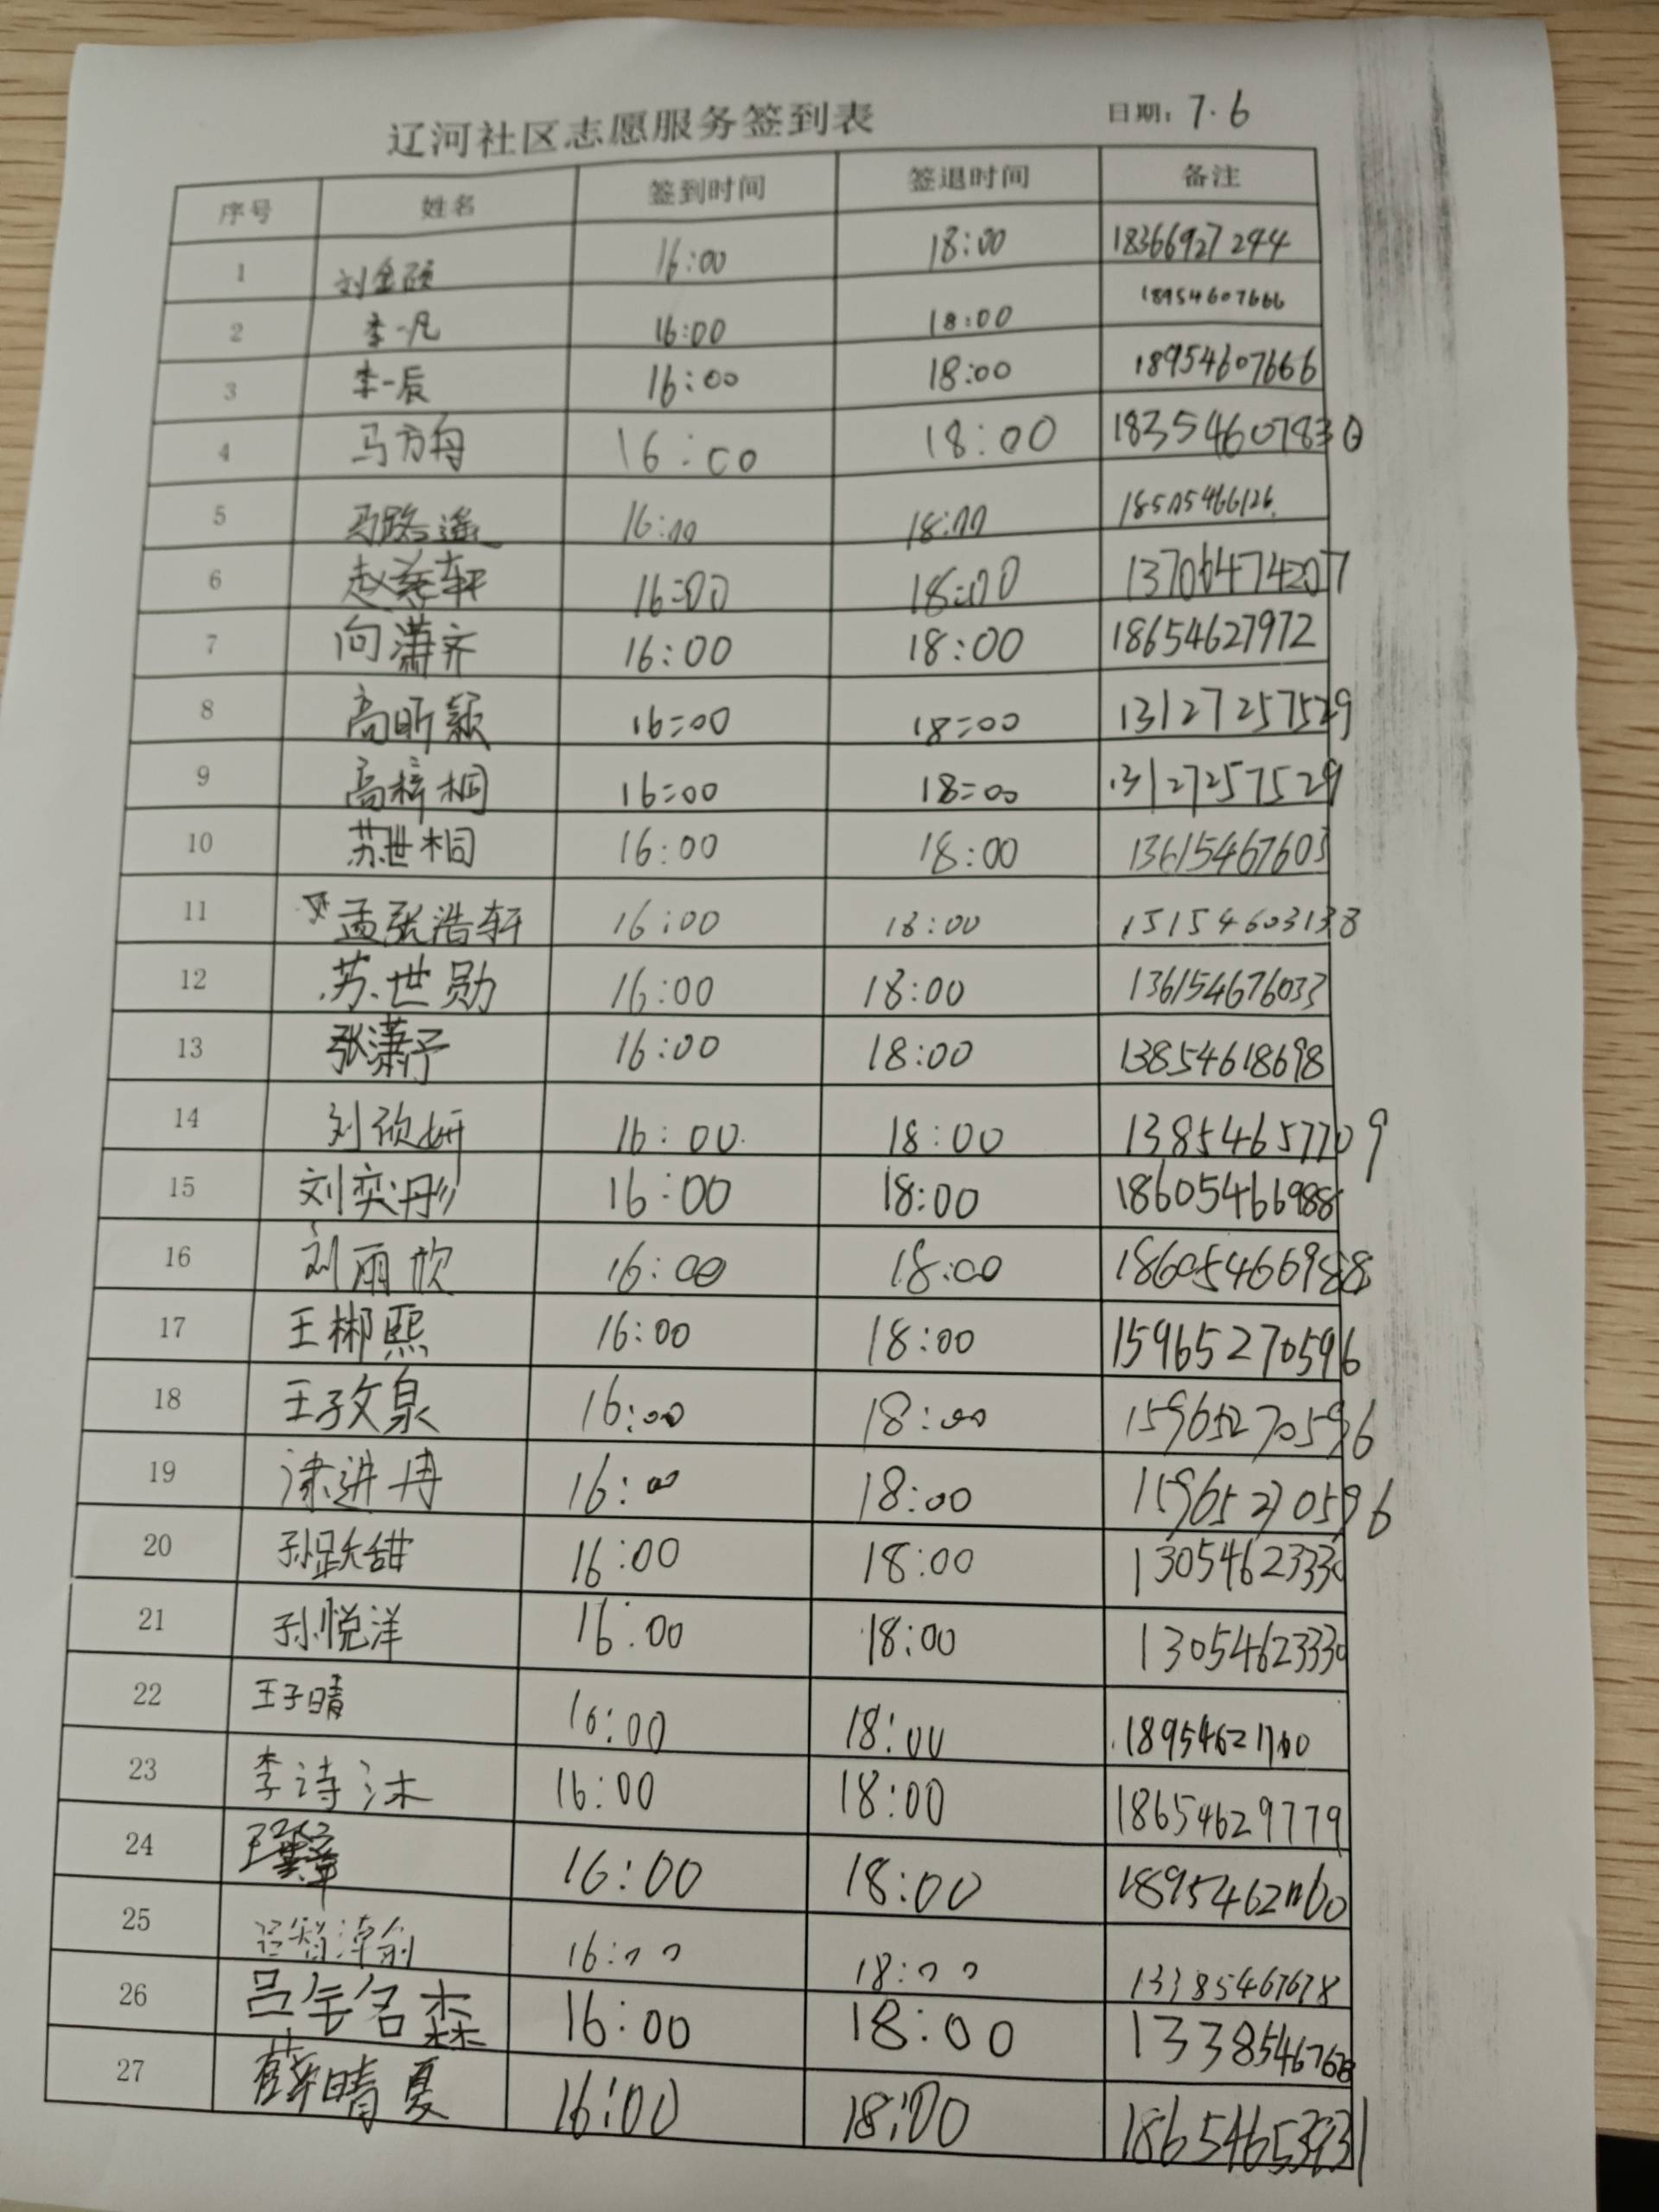 辽河社区志愿服务签到表 日期: 7.6
序号 姓名 签到时间 签退时间 备注
1 刘金硕 16:00 18:00 18366927244
2 李一凡 16:00 18:00 18954607666
3 李一辰 16:00 18:00 18954607666
4 马方舟 16:00 18:00 18354607830
5 马路遥 16:00 18:00 18505466126
6 赵 轩 16:00 18:00 13706474207
7 向潇齐 16:00 18:00 18654627972
8 高昕颖 16:00 18:00 13127257529
9 高梓桐 16:00 18:00 13127257529
10 苏世桐 16:00 18:00 13615467603
11 孟张浩轩 16:00 18:00 15154603138
12 苏世勋 16:00 18:00 13615467603
13 张潇予 16:00 18:00 13854618698
14 刘欣妍 16:00 18:00 13854657709
15 刘奕彤 16:00 18:00 18605466988
16 刘雨欣 16:00 18:00 18605466988
17 王郴熙 16:00 18:00 15965270596
18 王孜泉 16:00 18:00 15965270596
19 进冉 16:00 18:00 15965270596
20 孙跃甜 16:00 18:00 13054623330
21 孙悦洋 16:00 18:00 13054623330
22 王子晴 16:00 18:00 18954621160
23 李诗沐 16:00 18:00 18654629779
24 16:00 18:00 18954621160
25 16:00 18:00 13385467678
26 吕 名森 16:00 18:00 13385467678
27 薛晴夏 16:00 18:00 18654653931